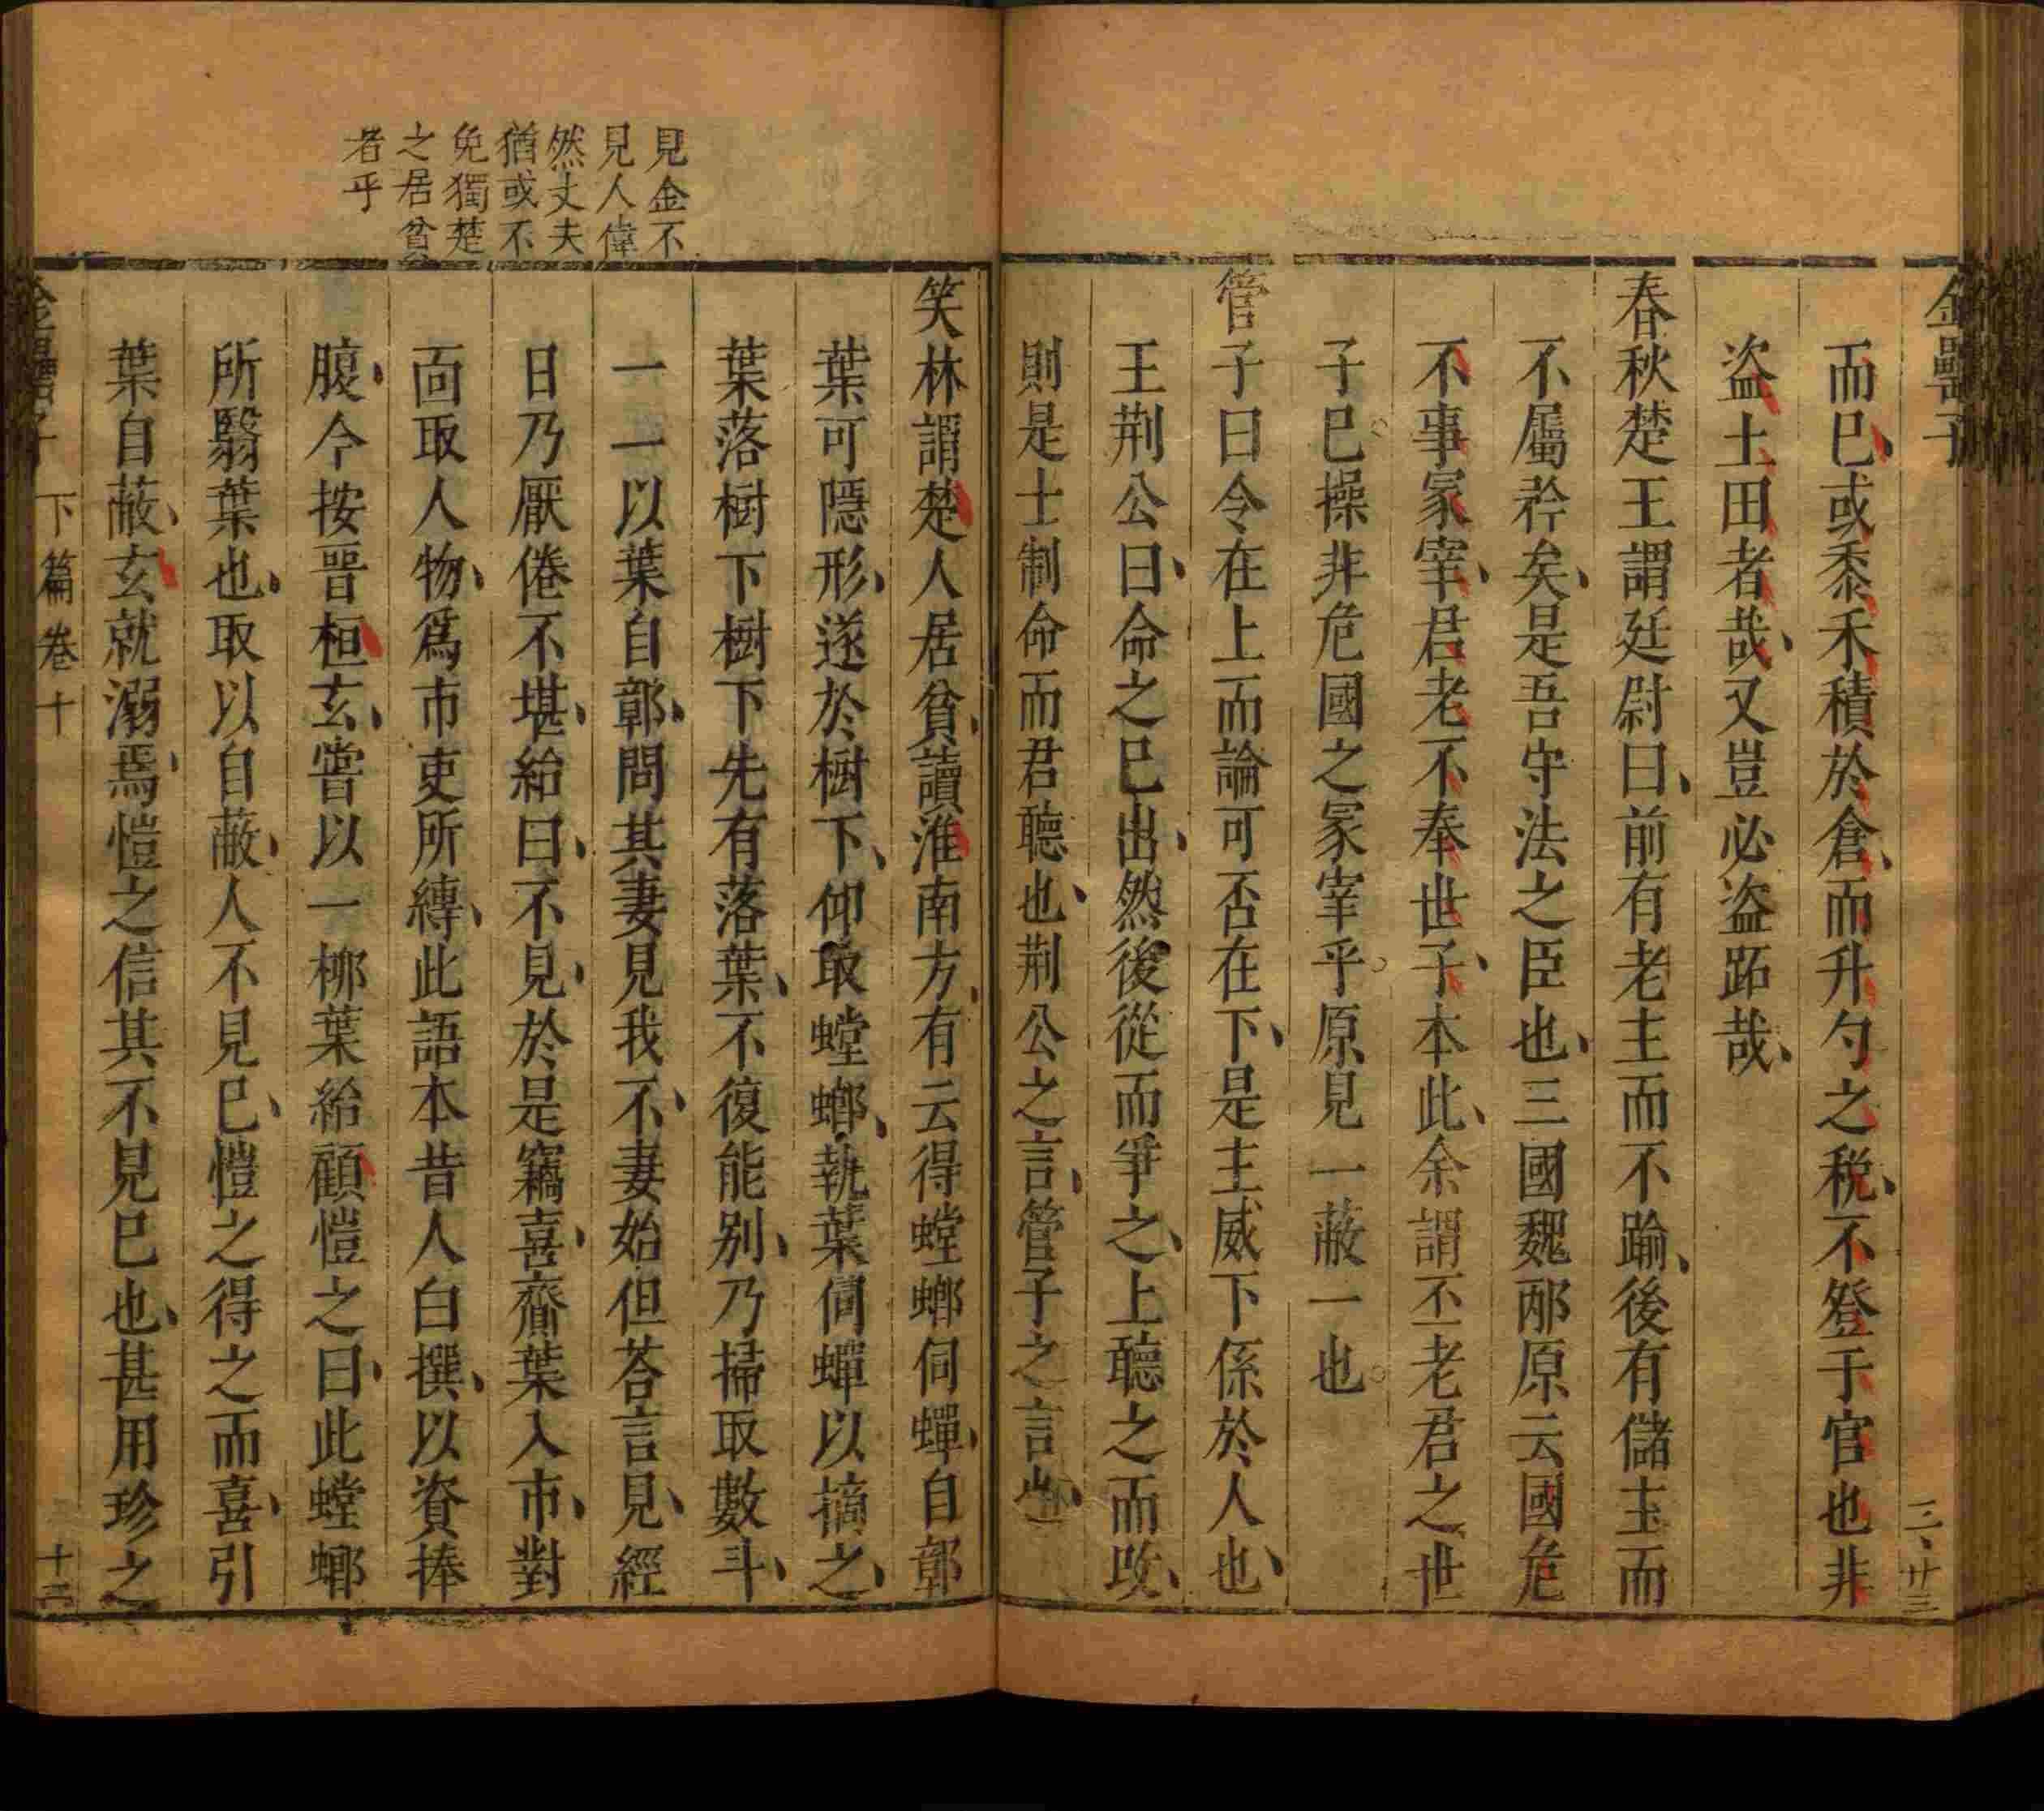 金罍子
三、廿三
而巳或黍禾積於倉而升勺之税不登于官也非
盗土田者哉又豈必盗跖哉
春秋楚王謂廷尉曰前有老主而不踰後有儲主而
不屬矜矣是吾守法之臣也三國魏邴原云國危
不事冢宰君老不奉世子本此余謂丕老君之世
子巳操非危國之冢宰乎原見一蔽一也
管子曰令在上而論可否在下是主威下係於人也
王荆公曰命之巳出然後從而爭之上聽之而改
則是士制命而君聽也荆公之言管子之言也
見金不
見人偉
然丈夫
猶或不
免獨楚
之居貧
者乎
笑林謂楚人居貧讀淮南方有云得螳螂伺蟬自鄣
葉可隱形遂於樹下仰取螳螂執葉伺蟬以摘之
葉落樹下樹下先有落葉不復能别乃掃取數斗
一一以葉自鄣問其妻見我不妻始但荅言見經
日乃厭倦不堪紿曰不見於是竊喜齎葉入市對
面取人物為市吏所縳此語本昔人白撰以資捧
腹今按晋桓玄嘗以一柳葉紿顧愷之曰此螳螂
所翳葉也取以自蔽人不見巳愷之得之而喜引
葉自蔽玄就溺焉愷之信其不見巳也甚用珍之
金罍子 下篇卷十